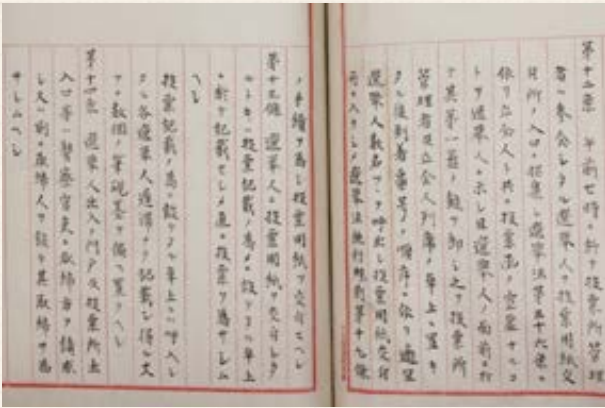 第十二条 午前七時ニ於テ投票所管理
者ハ参会シタル選挙人ヲ投票用紙交
付所ノ入口ニ招集シ選挙法第三十六条ニ
依リ立会人ト共ニ投票函ノ空虚ナルコ
トヲ選挙人ニ示シ且選挙人ノ面前ニ於
テ其第一蓋ノ鎖ヲ卸シ之ヲ投票所
管理者及立会人列席ノ卓上ニ置キ
タル後到着番号ノ順序ニ依リ逓置
選挙人数名ツヽヲ呼出シ投票用紙交付
所ニ入ラシメ選挙法施行規則第十九条
ノ手続ヲ為シ投票用紙ヲ交付スヘシ
第十三条 選挙人ニ投票用紙ヲ交付シタ
ルトキハ投票記載ノ為メニ設ケタル卓上
ニ於テ記載セシメ直ニ投票ヲ為サシム
ヘシ
投票記載ノ為ニ設ケタル卓上ニハ呼入シ
タル各選挙人遅滞ナク記載シ得ル丈
ケノ数個ノ筆硯墨ヲ備ヘ置クヘシ
第十四条 選挙人出入ノ門戸及投票所出
入口等ハ警察官吏ニ取締方ヲ請求
シ又ハ別ニ取締人ヲ設ケ其取締ヲ為
サシムヘシ